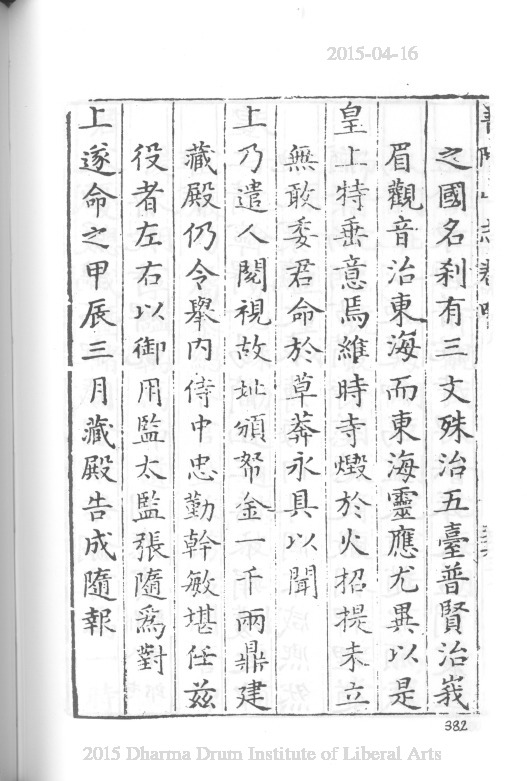 2015-04-16
之國名刹有三文殊治五臺普賢治峩
眉觀音治東海而東海靈應尤異以是
皇上特垂意焉維時寺燬於火招提未立
無敢委君命於草莽永具以聞
上乃遣人閱視故址頒帑金一千兩鼎建
藏殿仍令舉內侍中忠勤幹敏堪任茲
役者左右以御用監太監張隨爲對
上遂命之甲辰三月藏殿告成隨報
382
2015 Dharma Drum Institute of Liberal Arts